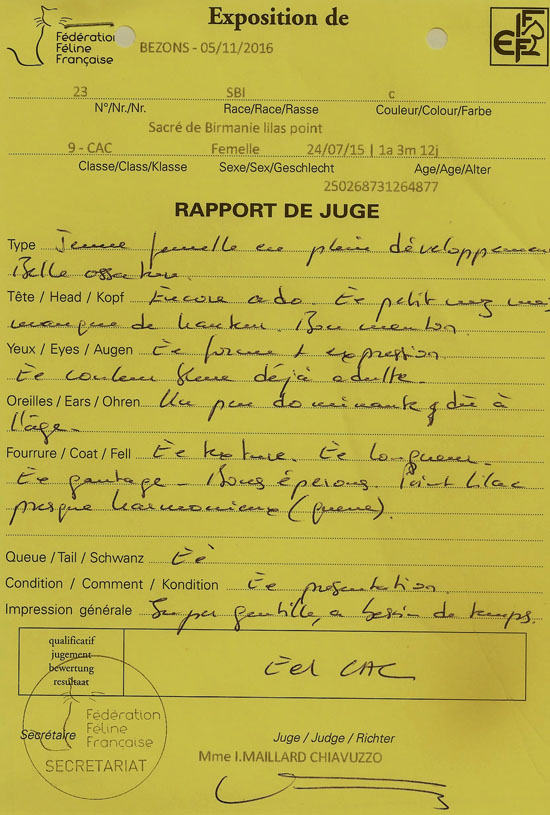 Exposition de
Fédération
Féline
Française
BEZONS - 05/11/2016
FIFe
23 SBI c
N°/Nr./Nr. Race/Race/Rasse Couleur/Colour/Farbe
Sacré de Birmanie lilas point
9 - CAC Femelle 24/07/15 | 1a 3m 12j
Classe/Class/Klasse Sexe/Sex/Geschlecht Age/Age/Alter
250268731264877
RAPPORT DE JUGE
Type Jeune femelle en plein développement
Belle ossature.
Tête / Head / Kopf Encore ado. Ee petit nez mais
manque de hauteur. Bon menton.
Yeux / Eyes / Augen Ee forme + expression
Ee couleur bleue déjà adulte.
Oreilles / Ears / Ohren Un peu dominantes dû à
l'âge.
Fourrure / Coat / Fell Ee texture. Ee longueur.
Ee gantage - Bons éperons. Point lilac
presque harmonieux (queue).
Queue / Tail / Schwanz Ee
Condition / Comment / Kondition Ee présentation.
Impression générale Super gentille, a besoin de temps.
qualificatif
jugement
bewertung
resultaat
CAC
Secrétaire
Fédération
Féline
Française
SECRETARIAT
Juge / Judge / Richter
Mme I.MAILLARD CHIAVUZZO